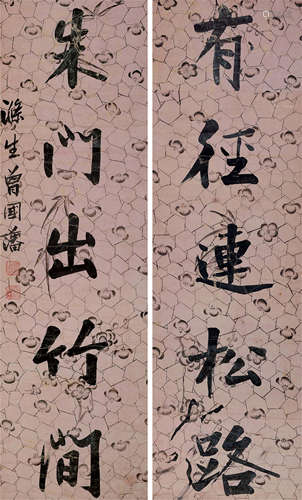 有徑連松路
朱門出竹間
滌生曾國藩